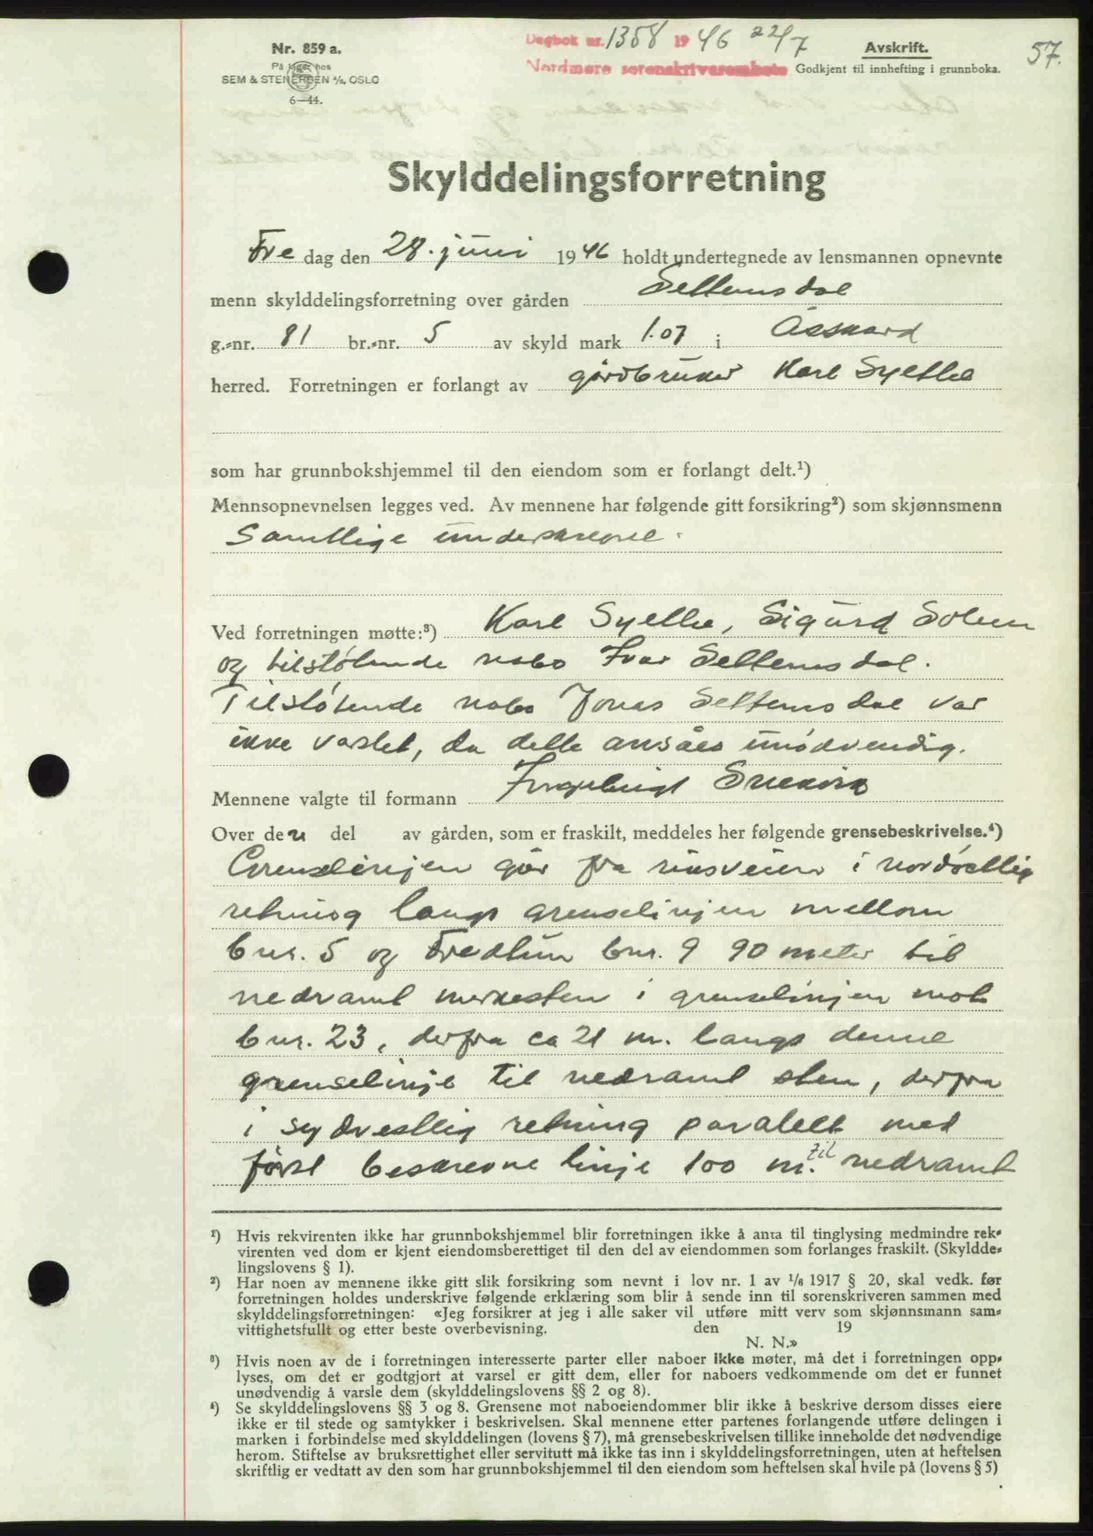 Nr. 859 a.
På lager hos
SEM & STENERSEN A/S, OSLO
6—44.
Dagbok nr. 1358 1946 22/7
Nordmøre sorenskriverembete
Avskrift.
Godkjent til innhefting i grunnboka.
57.
Skylddelingsforretning
Fredag den 28. juni 1946 holdt undertegnede av lensmannen opnevnte
menn skylddelingsforretning over gården Settemsdal
g.-nr. 81 br.-nr. 5 av skyld mark 1.07 i Åsskard
herred. Forretningen er forlangt av gårdbruker Karl Syltbe
som har grunnbokshjemmel til den eiendom som er forlangt delt.¹)
Mennsopnevnelsen legges ved. Av mennene har følgende gitt forsikring²) som skjønnsmenn
Samtlige underskrevne.
Ved forretningen møtte:³) Karl , Sigurd Solem
og tilstøtende nabo Ivar Settemsdal.
Tilstøtende nabo Jonas Settemsdal var
ikke varslet, da dette ansåes unødvendig.
Mennene valgte til formann Ingebrigt
Over den del av gården, som er fraskilt, meddeles her følgende grensebeskrivelse.⁴)
Grenselinjen går fra riksveien i nordvestlig
retning langs grenselinjen mellom
bnr. 5 og Fredtun bnr. 9 90 meter til
nedramt merkesten i grenselinjen mot
bnr. 23, derfra ca 21 m. langs denne
grenselinje til nedramt sten, derfra
i sydvestlig retning paralelt med
først beskrevne linje 100 m. til nedramt
¹) Hvis rekvirenten ikke har grunnbokshjemmel blir forretningen ikke å anta til tinglysing medmindre rek-
virenten ved dom er kjent eiendomsberettiget til den del av eiendommen som forlanges fraskilt. (Skyldde-
lingslovens § 1).
²) Har noen av mennene ikke gitt slik forsikring som nevnt i lov nr. 1 av 1/6 1917 § 20, skal vedk. før
forretningen holdes underskrive følgende erklæring som blir å sende inn til sorenskriveren sammen med
skylddelingsforretningen: «Jeg forsikrer at jeg i alle saker vil utføre mitt verv som skjønnsmann sam-
vittighetsfullt og etter beste overbevisning. den 19
N. N.»
³) Hvis noen av de i forretningen interesserte parter eller naboer ikke møter, må det i forretningen opp-
lyses, om det er godtgjort at varsel er gitt dem, eller for naboers vedkommende om det er funnet
unødvendig å varsle dem (skylddelingslovens §§ 2 og 8).
⁴) Se skylddelingslovens §§ 3 og 8. Grensene mot naboeiendommer blir ikke å beskrive dersom disses eiere
ikke er til stede og samtykker i beskrivelsen. Skal mennene etter partenes forlangende utføre delingen i
marken i forbindelse med skylddelingen (lovens § 7), må grensebeskrivelsen tillike inneholde det nødvendige
herom. Stiftelse av bruksrettighet eller servitutt må ikke tas inn i skylddelingsforretningen, uten at heftelsen
skriftlig er vedtatt av den som har grunnbokshjemmel til den eiendom som heftelsen skal hvile på (lovens § 5)